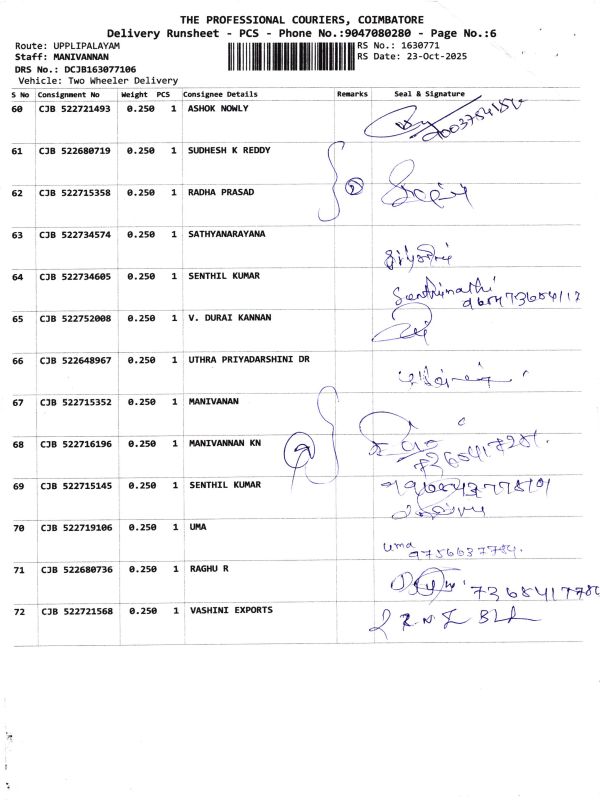 THE PROFESSIONAL COURIERS, COIMBATORE
Delivery Runsheet - PCS - Phone No.:9047080280 - Page No.:6
Route: UPPLIPALAYAM RS No.: 1630771
Staff: MANIVANNAN RS Date: 23-Oct-2025
DRS No.: DCJB163077106
Vehicle: Two Wheeler Delivery
S No Consignment No Weight PCS Consignee Details Remarks Seal & Signature
60 CJB 522721493 0.250 1 ASHOK NOWLY
61 CJB 522680719 0.250 1 SUDHESH K REDDY
2
62 CJB 522715358 0.250 1 RADHA PRASAD
63 CJB 522734574 0.250 1 SATHYANARAYANA
64 CJB 522734605 0.250 1 SENTHIL KUMAR
Senthilnathi
65 CJB 522752008 0.250 1 V. DURAI KANNAN
66 CJB 522648967 0.250 1 UTHRA PRIYADARSHINI DR
67 CJB 522715352 0.250 1 MANIVANAN
68 CJB 522716196 0.250 1 MANIVANNAN KN
69 CJB 522715145 0.250 1 SENTHIL KUMAR
70 CJB 522719106 0.250 1 UMA
uma
71 CJB 522680736 0.250 1 RAGHU R
72 CJB 522721568 0.250 1 VASHINI EXPORTS